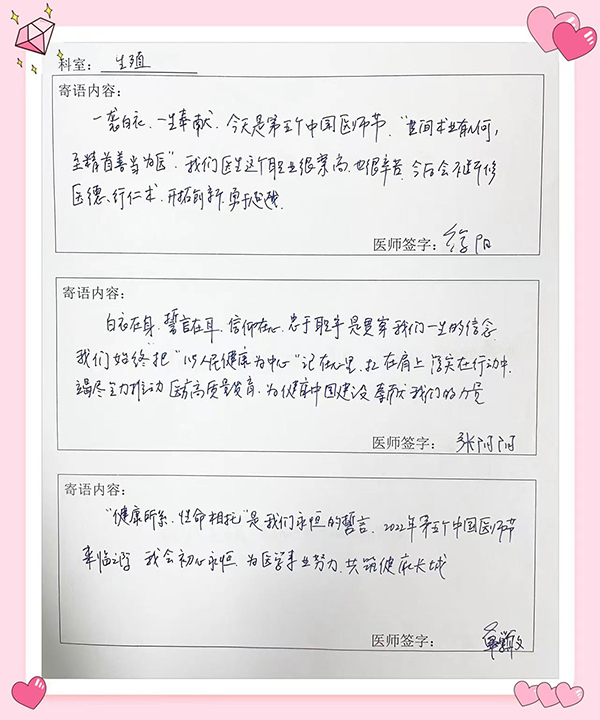 科室： 生殖
寄语内容：
一袭白衣、一生奉献、今天是第五个中国医师节、“世间术业有几何，
至精首善当为医”。我们医生这个职业很崇高、也很辛苦、今后会不断修
医德、行仁术、开拓创新、勇于超越.
医师签字： 徐阳
寄语内容：
白衣在身、誓言在耳、信仰在心、忠于职守是贯穿我们一生的信念
我们始终把“以人民健康为中心”记在心里、扛在肩上 落实在行动中
竭尽全力推动医疗高质量发育、为健康中国建设 奉献我们的力量
医师签字： 张阳阳
寄语内容：
“健康所系、性命相托”是我们永恒的誓言、2022年第五个中国医师节
来临之际 我会初心永恒 为医学事业努力、共筑健康长城
医师签字：